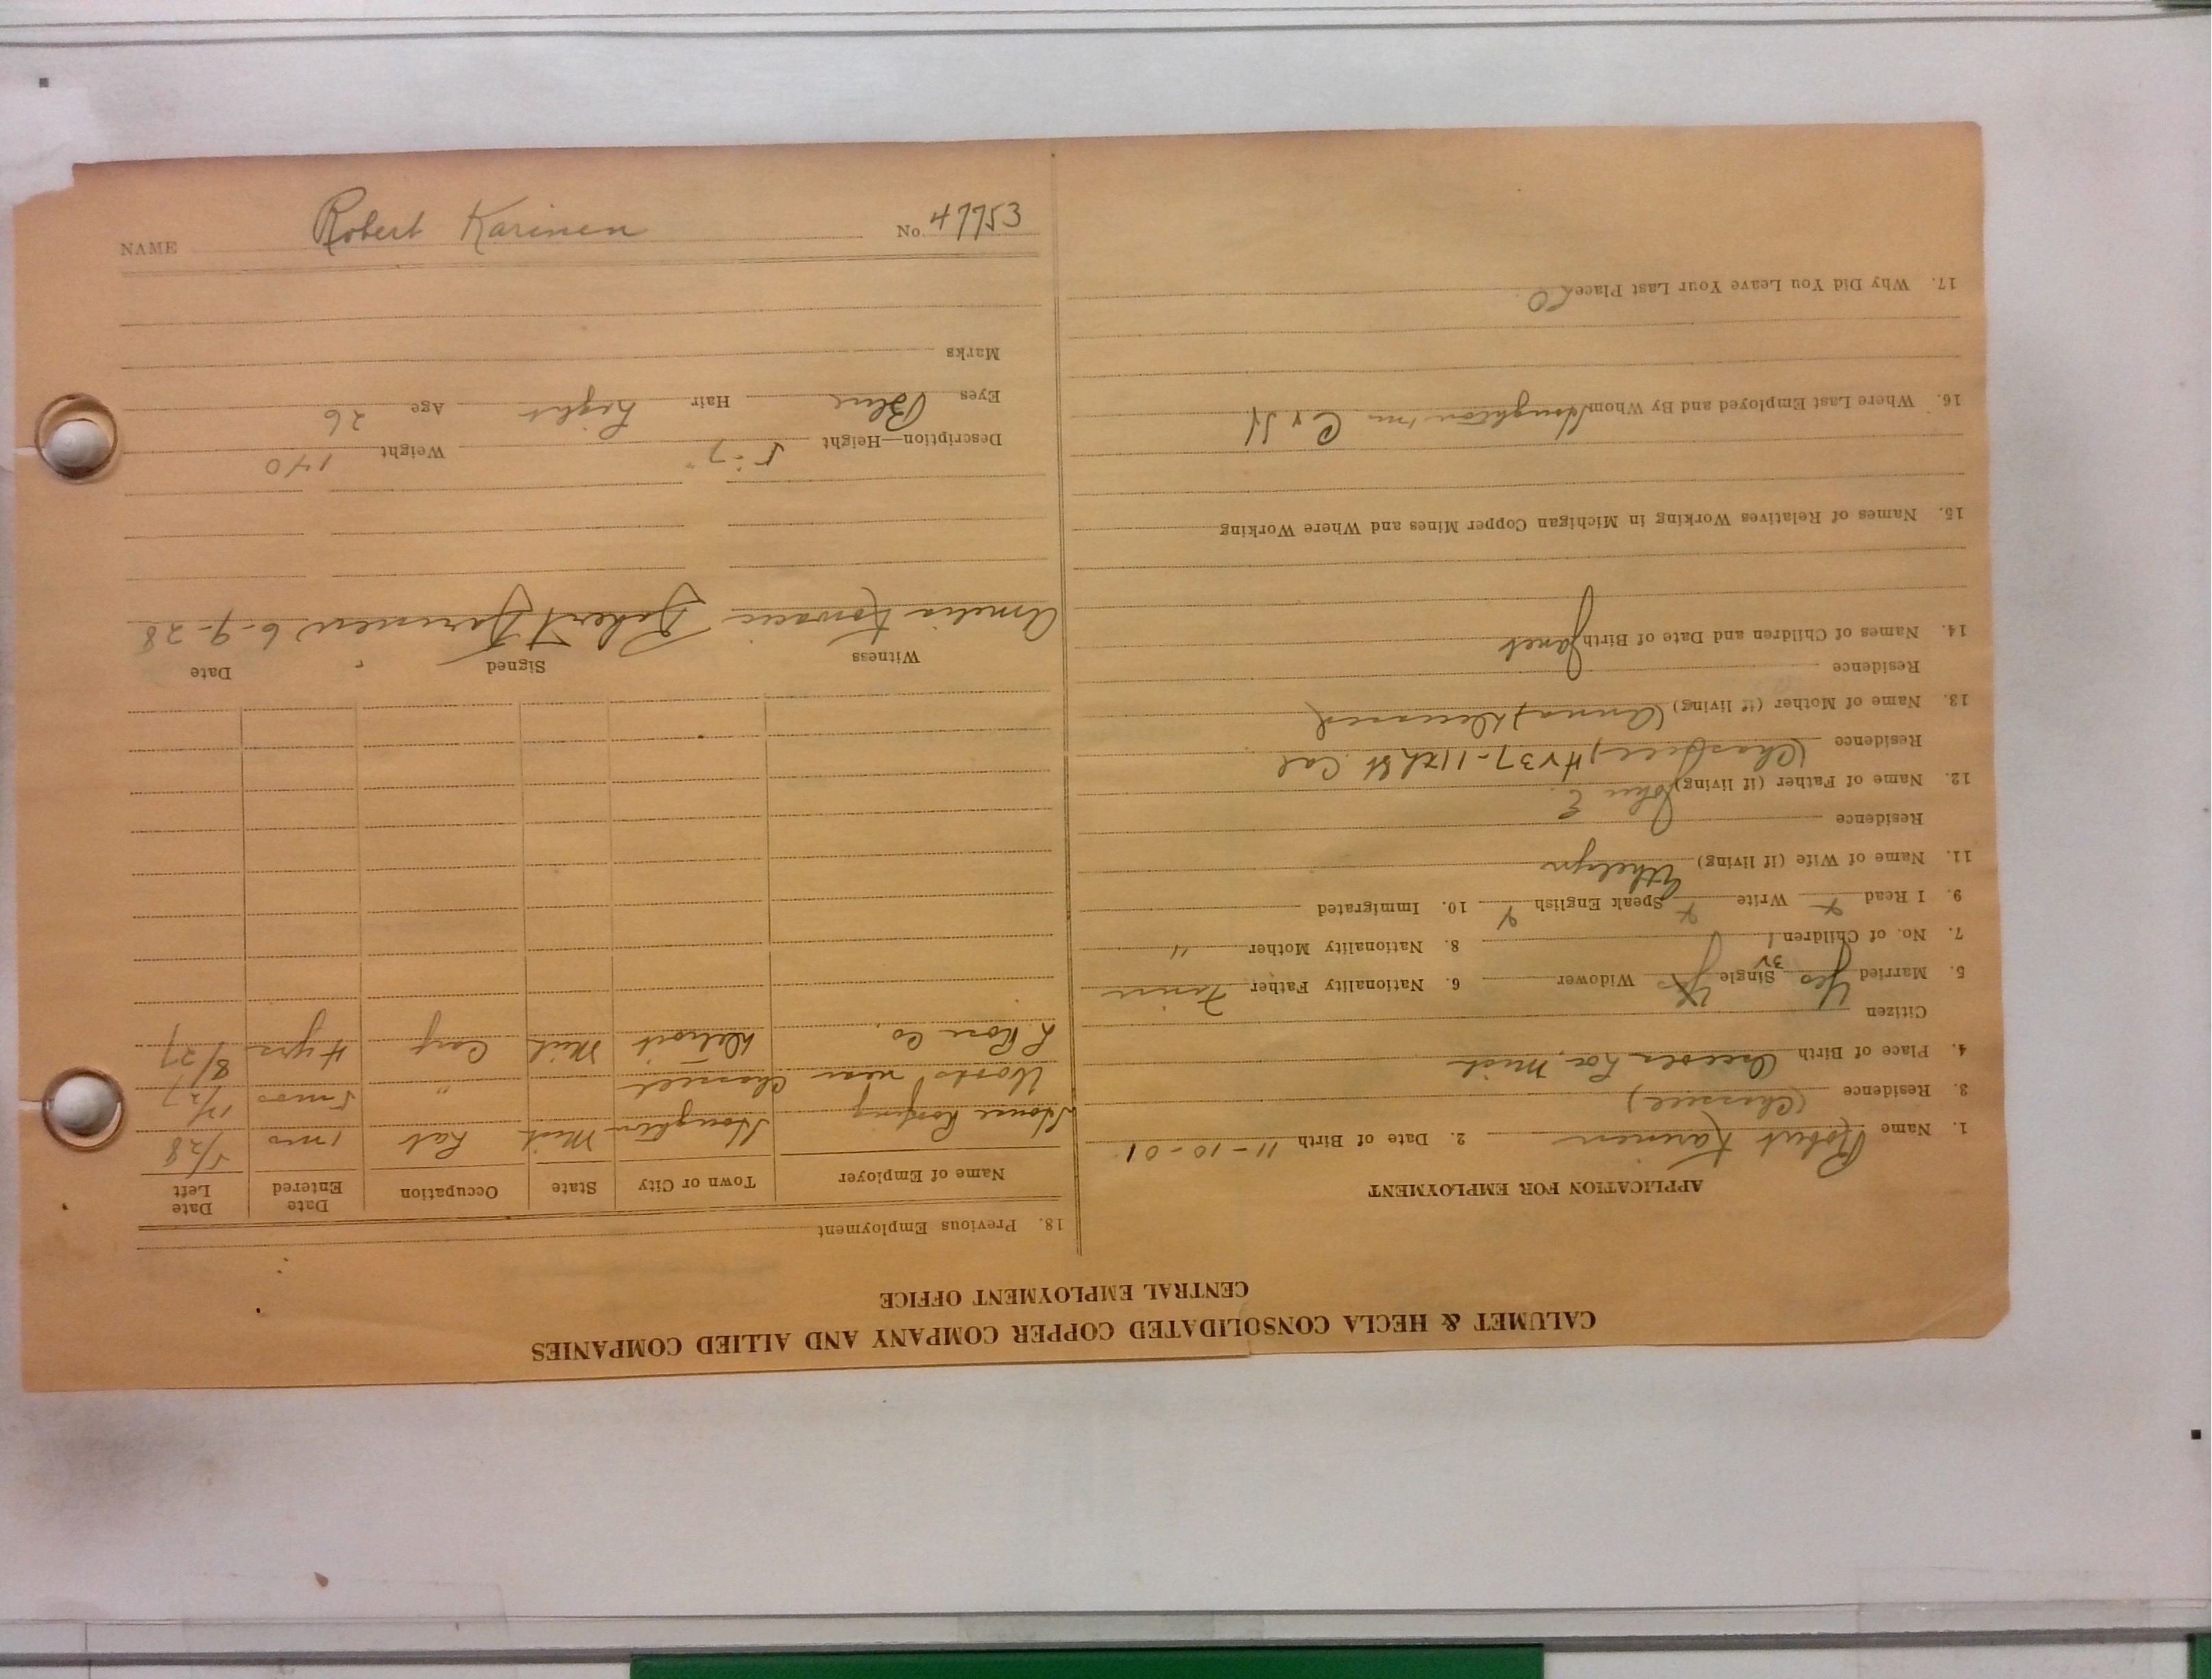 CALUMET & HECLA CONSOLIDATED COPPER COMPANY AND ALLIED COMPANIES
CENTRAL EMPLOYMENT OFFICE
APPLICATION FOR EMPLOYMENT
1. Name Robert Karinen 2. Date of Birth 11-10-01
3. Residence (Chassell)
4. Place of Birth Osceola Loc, Mich
Citizen
5. Married Yes Single Widower 6. Nationality Father Finn
7. No. of Children 1 8. Nationality Mother "
9. I Read Write Speak English 10. Immigrated
11. Name of Wife (if living) Ethelyn
Residence
12. Name of Father (if living) John E.
Residence (Chassell) 4237-11th St. Cal
13. Name of Mother (if living) (Anna) Deceased
Residence
14. Names of Children and Date of Birth Janet
15. Names of Relatives Working in Michigan Copper Mines and Where Working
16. Where Last Employed and By Whom Houghton C & H
17. Why Did You Leave Your Last Place
18. Previous Employment
Name of Employer Town or City State Occupation Date Entered Date Left
House Roofing Houghton Mich Lab 1 mo 5/28
Woods near Chassell " 5 mos 12/27
Rose Co. Detroit Mich Carp 4 yrs 8/27
Witness Signed Date
Amelia Robert Karinen 6-9-28
Description—Height 5'-7" Weight 140
Eyes Blue Hair Light Age 26
Marks
NAME Robert Karinen No. 47753